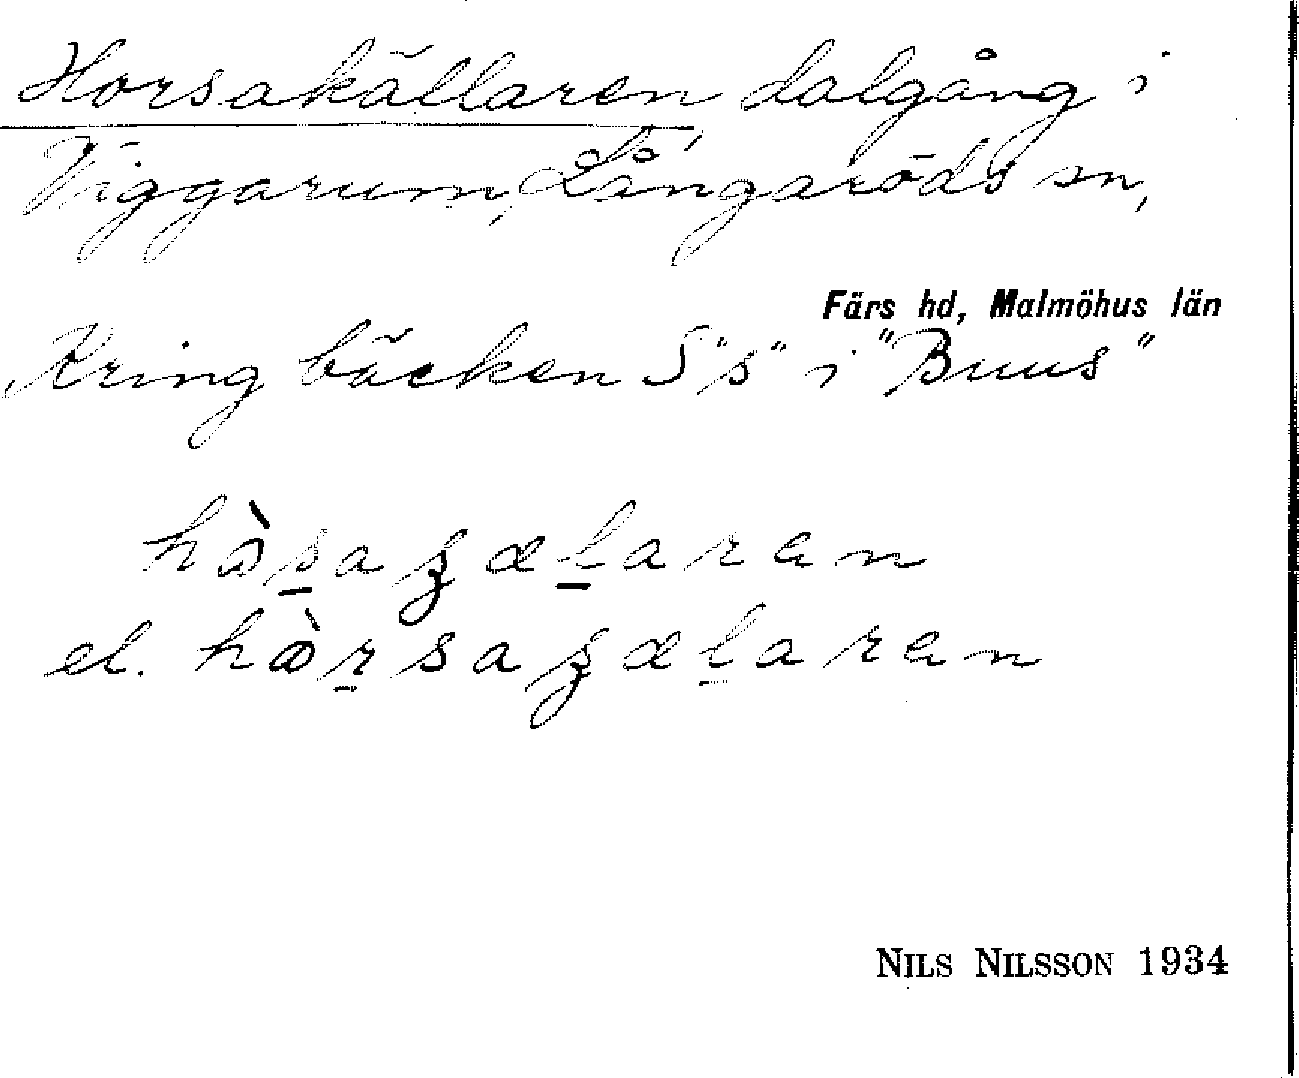 Horsakällaren, dalgång i
Viggarum, Långaröds sn,
Färs hd, Malmöhus län
Kring bäcken S "s" i "Buus"
el.
NILS NILSSON 1934